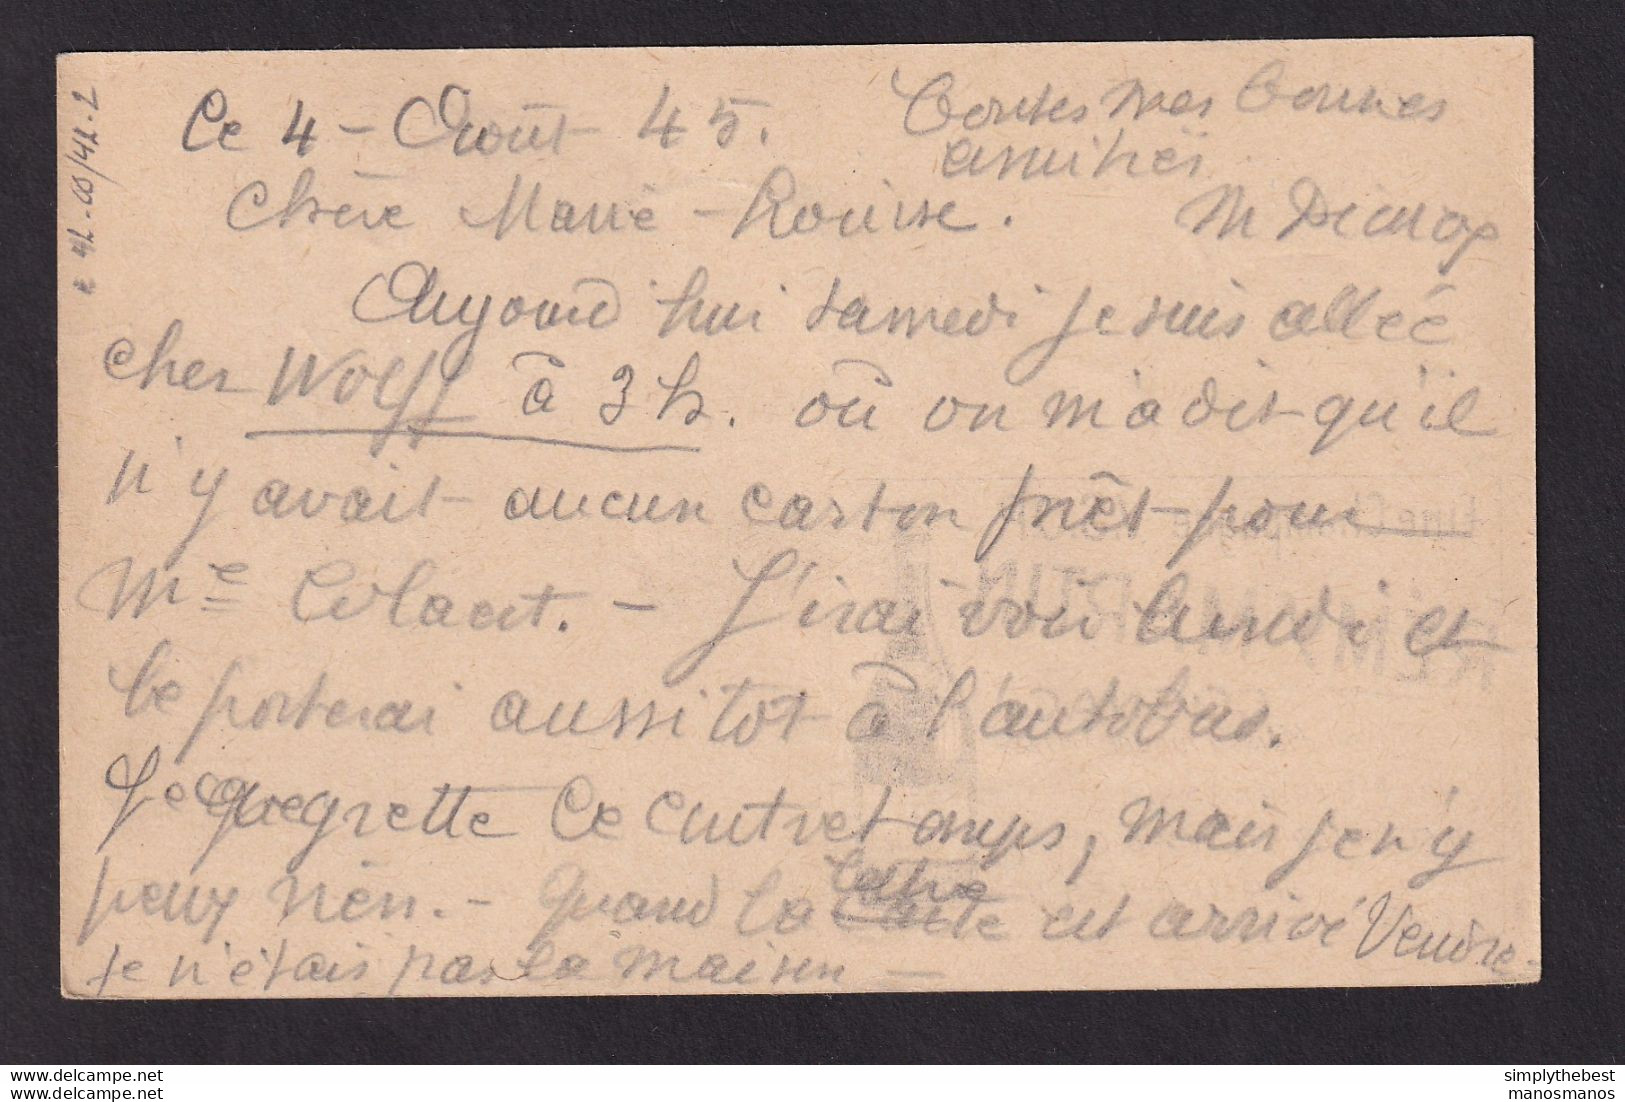 Ce 4 - Août 45.
Toutes mes bonnes
amitiés.
Chère Marie-Louise.
M
Aujourd'hui samedi je suis allée
chez Wolff à 3 h. où on m'a dit qu'il
n'y avait aucun carton prêt pour
Me Colaert. - J'irai voir lundi et
le porterai aussitôt à l'autobus.
Je regrette ce contretemps, mais je n'y
peux rien. - Quand la carte est arrivé Vendre-
je n'étais pas la maison -
simplythebest
manosmanos
www.delcampe.net
www.delcampe.net